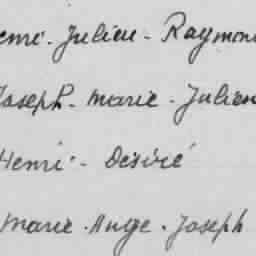 enri - Julien - Raymon
Joseph - Marie - Julien
Henri - Désiré
Marie - Ange - Joseph